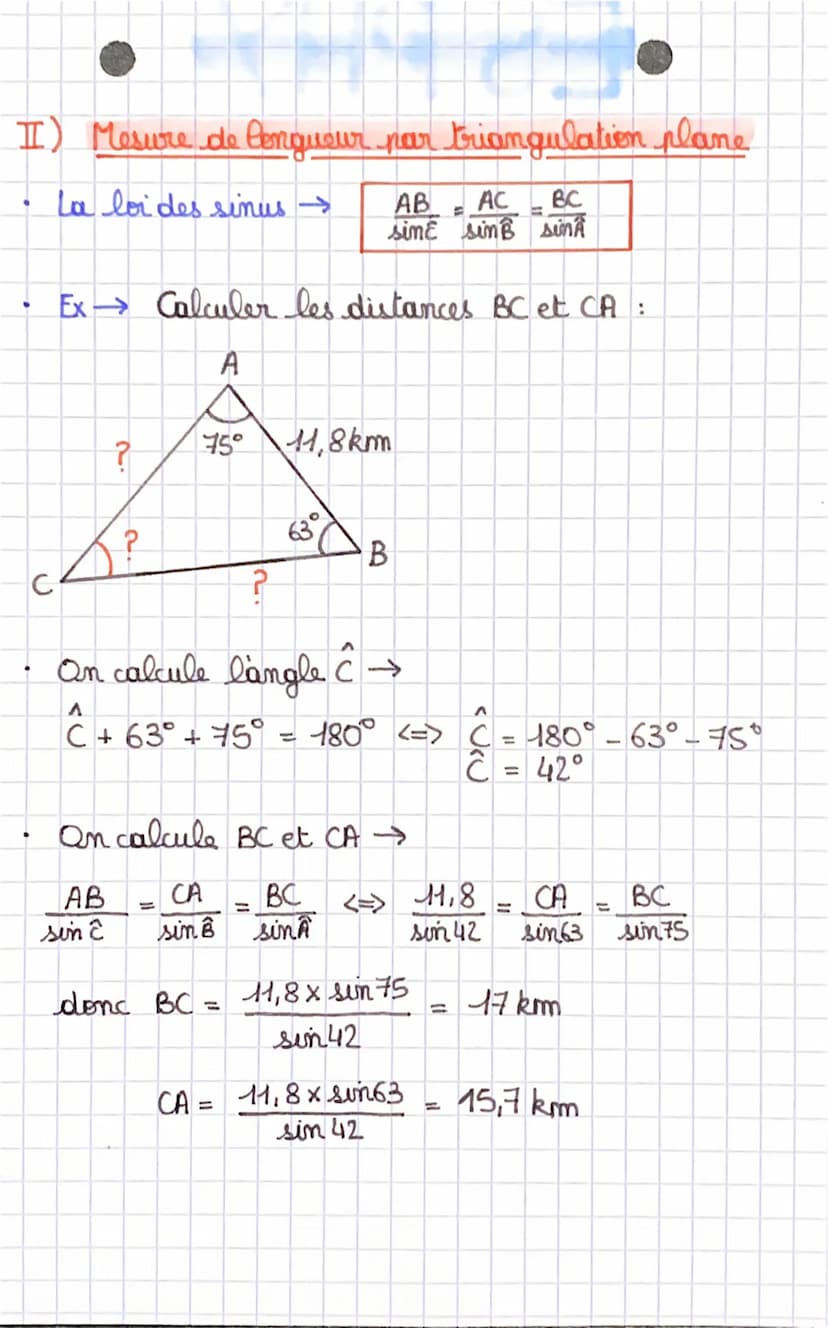 II) Mesure de longueur par triangulation plane
• La loi des sinus → AB/sin Ĉ = AC/sin B̂ = BC/sin Â
• Ex → Calculer les distances BC et CA :
A
? 75° 11,8 km
? 63° B
C ?
• On calcule l'angle Ĉ →
Ĉ + 63° + 75° = 180° <=> Ĉ = 180° - 63° - 75°
Ĉ = 42°
• On calcule BC et CA →
AB/sin Ĉ = CA/sin B̂ = BC/sin Â <=> 11,8/sin 42 = CA/sin 63 = BC/sin 75
donc BC = 11,8 x sin 75/sin 42 = 17 km
CA = 11,8 x sin 63/sin 42 = 15,7 km